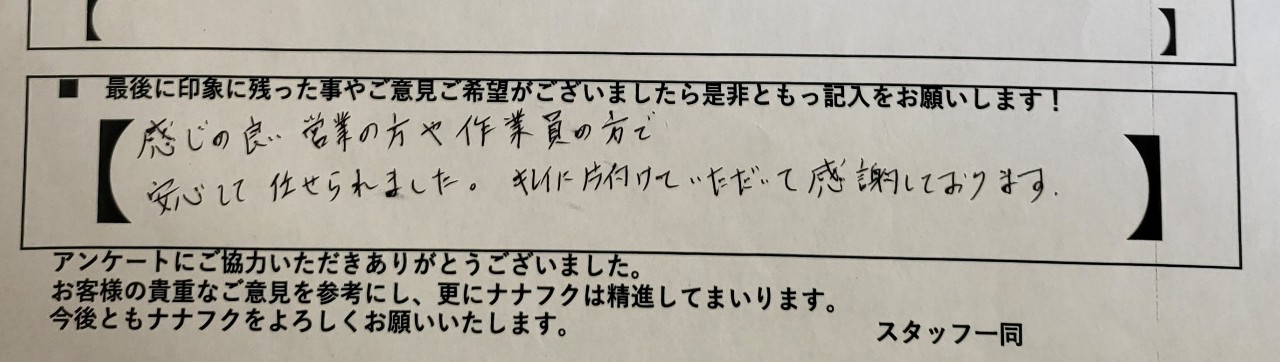 ■ 最後に印象に残った事やご意見ご希望がございましたら是非ともっ記入をお願いします！
感じの良い営業の方や作業員の方で
安心して任せられました。キレイに片付けていただいて感謝しております.
アンケートにご協力いただきありがとうございました。
お客様の貴重なご意見を参考にし、更にナナフクは精進してまいります。
今後ともナナフクをよろしくお願いいたします。
スタッフ一同